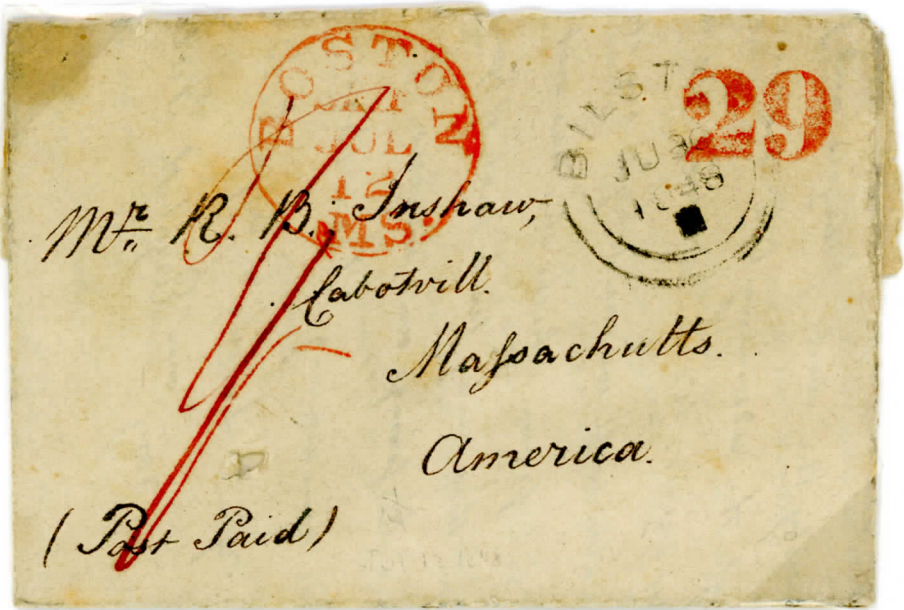 BOSTON
JUL
12
MS.
BILSTO
JU 30
1848
29
Mr. R. B. Inshaw,
Cabotvill.
Massachutts.
America.
(Post Paid)